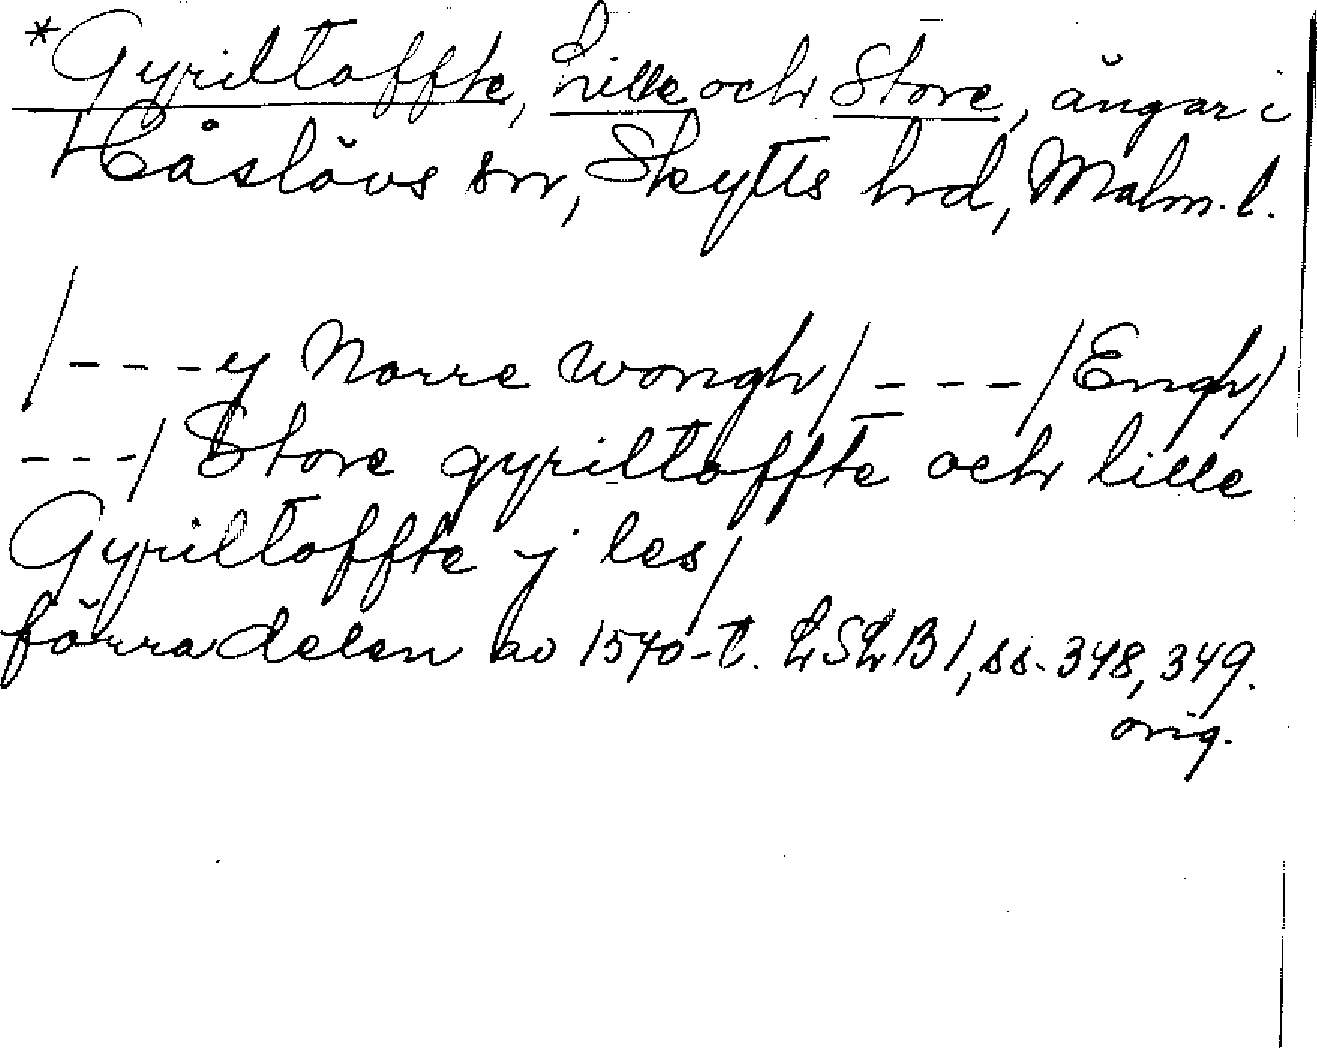 *Gyriltoffte, Lille och Store, ängar i
Håslövs sn, Skytts hd, Malm. l.
/---y Norre wongh/---/Engh/
---/ Store gyriltoffte och lille
Gyriltoffte j les/
förra delen av 1570-t. LSLB1, ss. 348, 349.
orig.